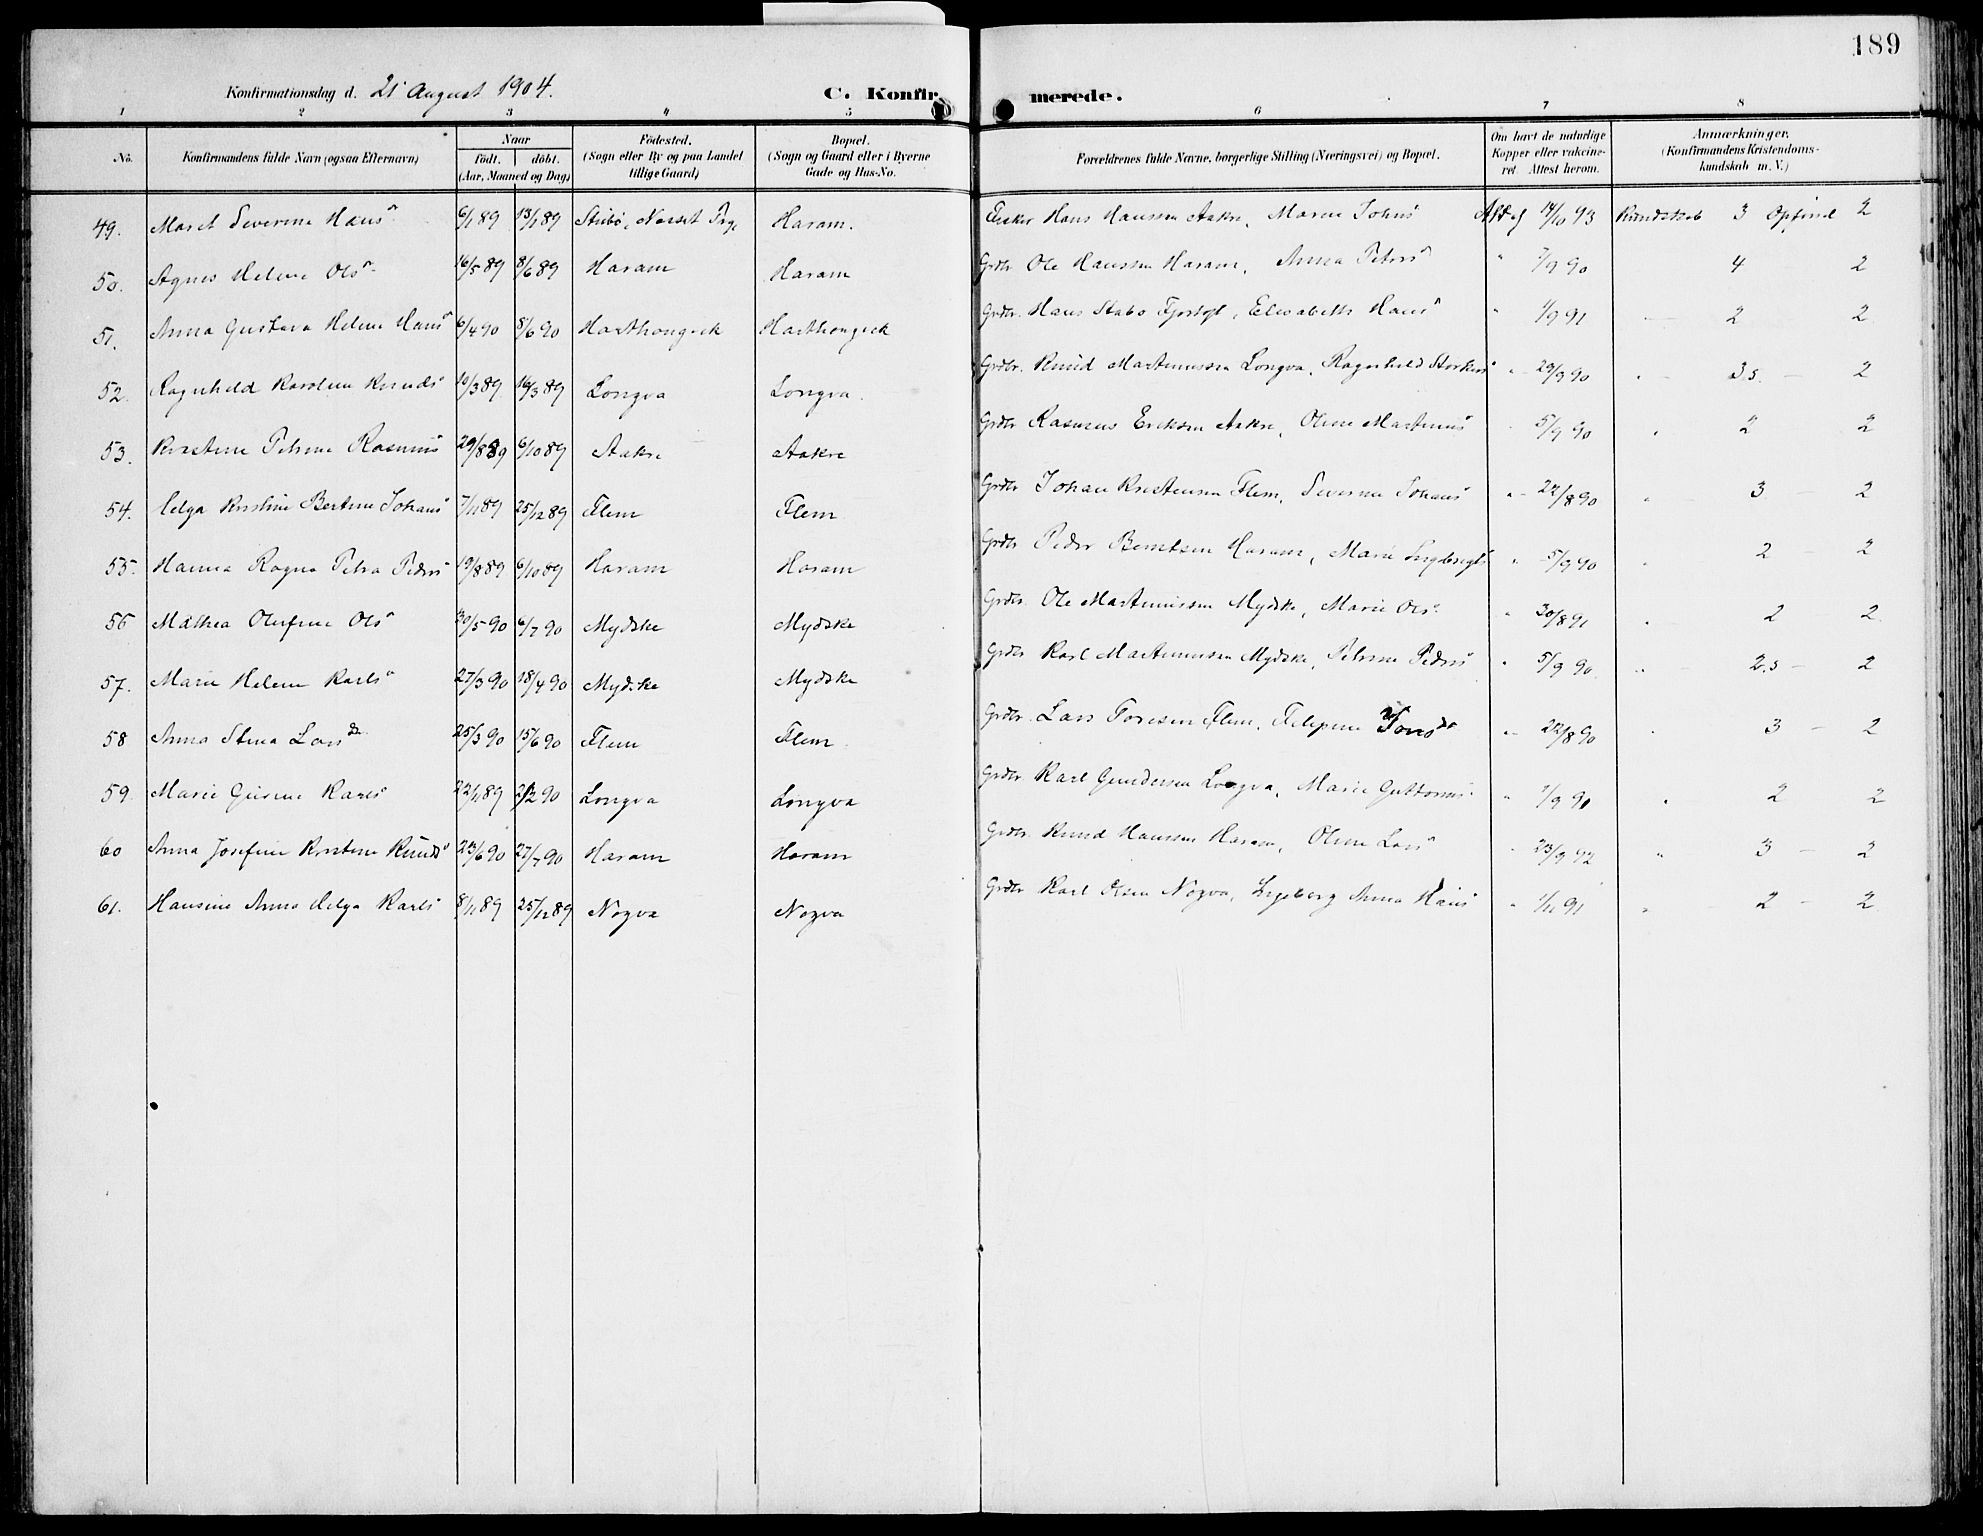 189
Konfirmationsdag d. 21 August 1904.
C. Konfir
merede.
1 2 3 4 5 6 7 8
No. Konfirmandens fulde Navn (ogsaa Efternavn) Naar födt. döbt. (Aar, Maaned og Dag) Födested. (Sogn eller By og paa Landet tillige Gaard) Bopæl. (Sogn og Gaard eller i Byerne Gade og Hus-No. Forældrenes fulde Navne, borgerlige Stilling (Næringsvei) og Bopæl. Om havt de naturlige Kopper eller vakcineret. Attest herom. Anmærkninger. (Konfirmandens Kristendomskundskab m. V.)
49. Maret Severine Hans 6/1 89 13/1 89 Haram. Fisker Hans Hanssen Aakre, Maren Johns Att af 14/10 93 Kundskab 3 Opförsel 2
50. Agnes Helene Ols 16/5 89 8/6 89 Haram Haram Grdbr. Ole Hanssen Haram, Anna Peters " 7/9 90 4 2
51. Anna Gustava Helene Hans 6/4 90 8/6 90 Grdbr. Hans Stabo Fjørtoft, Elisabeth Hans " 1/9 91 2 2
52. Ragnhild Karoline Knuds 10/3 89 16/3 89 Longva Longva. Grdbr. Knud Martinussen Longva, Ragnhild " 29/9 90 " 3.5. 2
53. Kristine Petrine Rasmus 29/8 89 6/10 89 Aakre Aakre Grdbr. Rasmus Eriksen Aakre, Oline Martinus 5/9 90 " 2 2
54. Helga Kristine Bertine Johans 7/11 89 25/12 89 Flem Flem Grdbr. Johan Kristensen Flem, Severine Johans " 22/8 90 " 3 2
55. Hanna Ragna Petra Peders 19/8 89 6/10 89 Haram Haram Grdbr. Peder Berntsen Haram, Marie " 5/9 90 " 2 2
56 Mathea Olufine Ols 30/5 90 6/7 90 Mydske Mydske Grdbr. Ole Martinussen Mydske, Marie Ols " 30/8 91 " 2 2
57. Marie Helene Karls 27/3 90 18/4 90 Mydske Mydske Grdbr. Karl Martinussen Mydske, Petrine Peders " 5/9 90 " 2.5 2
58 Anna Stina Lars 25/3 90 15/6 90 Flem Flem Grdbr. Lars Toresen Flem, Filipine Jons " 22/8 90 " 3 2
59. Marie Karls 22/11 89 2/2 90 Longva Longva Grdbr. Karl Gundersen Longva, Marie Guttorms " 1/9 91 " 2 2
60 Anna Josefine Kristine Knuds 23/6 90 27/7 90 Haram Haram Grdbr. Knud Hanssen Haram, Oline Lars " 23/9 92 " 3 2
61. Hansine Anna Helga Karls 8/11 89 25/12 89 Nogva Nogva Grdbr. Karl Olsen Nogva, Ingeborg Anna Hans " 1/11 91 " 2 2